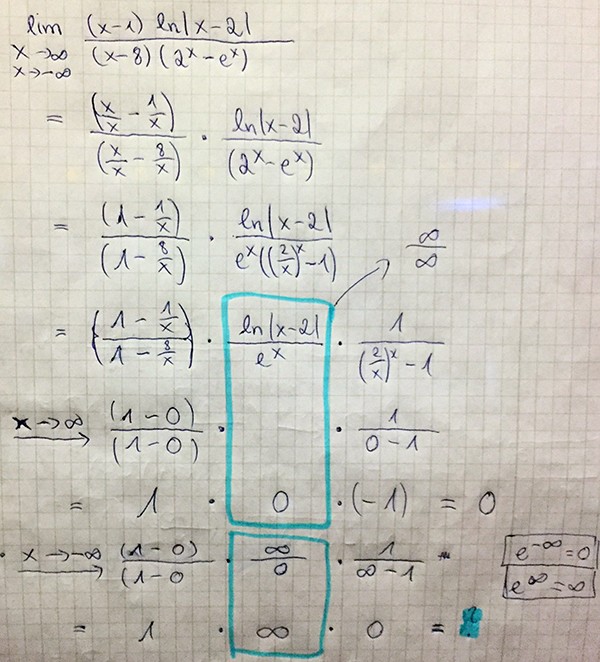 lim (x-1) ln|x-2| / (x-8) (2^x - e^x)
x→∞
x→-∞
= (x/x - 1/x) / (x/x - 8/x) · ln|x-2| / (2^x - e^x)
= (1 - 1/x) / (1 - 8/x) · ln|x-2| / e^x((2/x)^x - 1) ∞/∞
= (1 - 1/x / 1 - 8/x) · ln|x-2| / e^x · 1 / (2/x)^x - 1
x→∞ (1-0) / (1-0) · · 1 / 0-1
= 1 · 0 · (-1) = 0
· x→-∞ (1-0) / (1-0 · ∞/0 · 1 / ∞-1 = e^-∞ = 0
e^∞ = ∞
= 1 · ∞ · 0 = ?